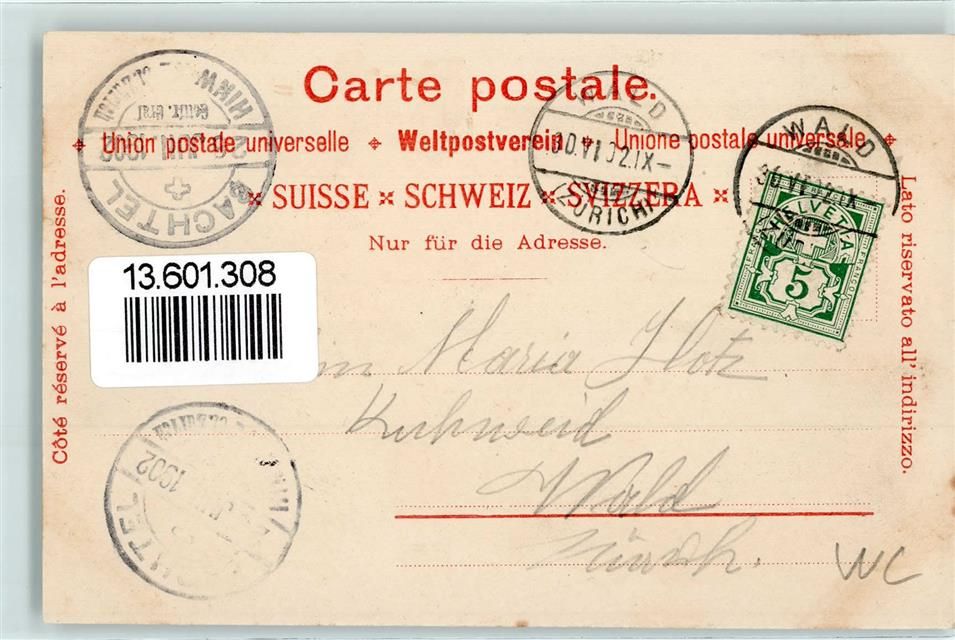 Carte postale.
Union postale universelle Weltpostverein Unione postale universale
SUISSE SCHWEIZ SVIZZERA
Nur für die Adresse.
Côté réservé à l'adresse.
Lato riservato all' indirizzo.
BACHTEL
WALD
30.VI 02.IX-
(ZÜRICH)
WALD
HELVETIA
FRANCO
5
13.601.308
Maria Hotz
Kuhweid
Wald
Zürich.
1902
WC